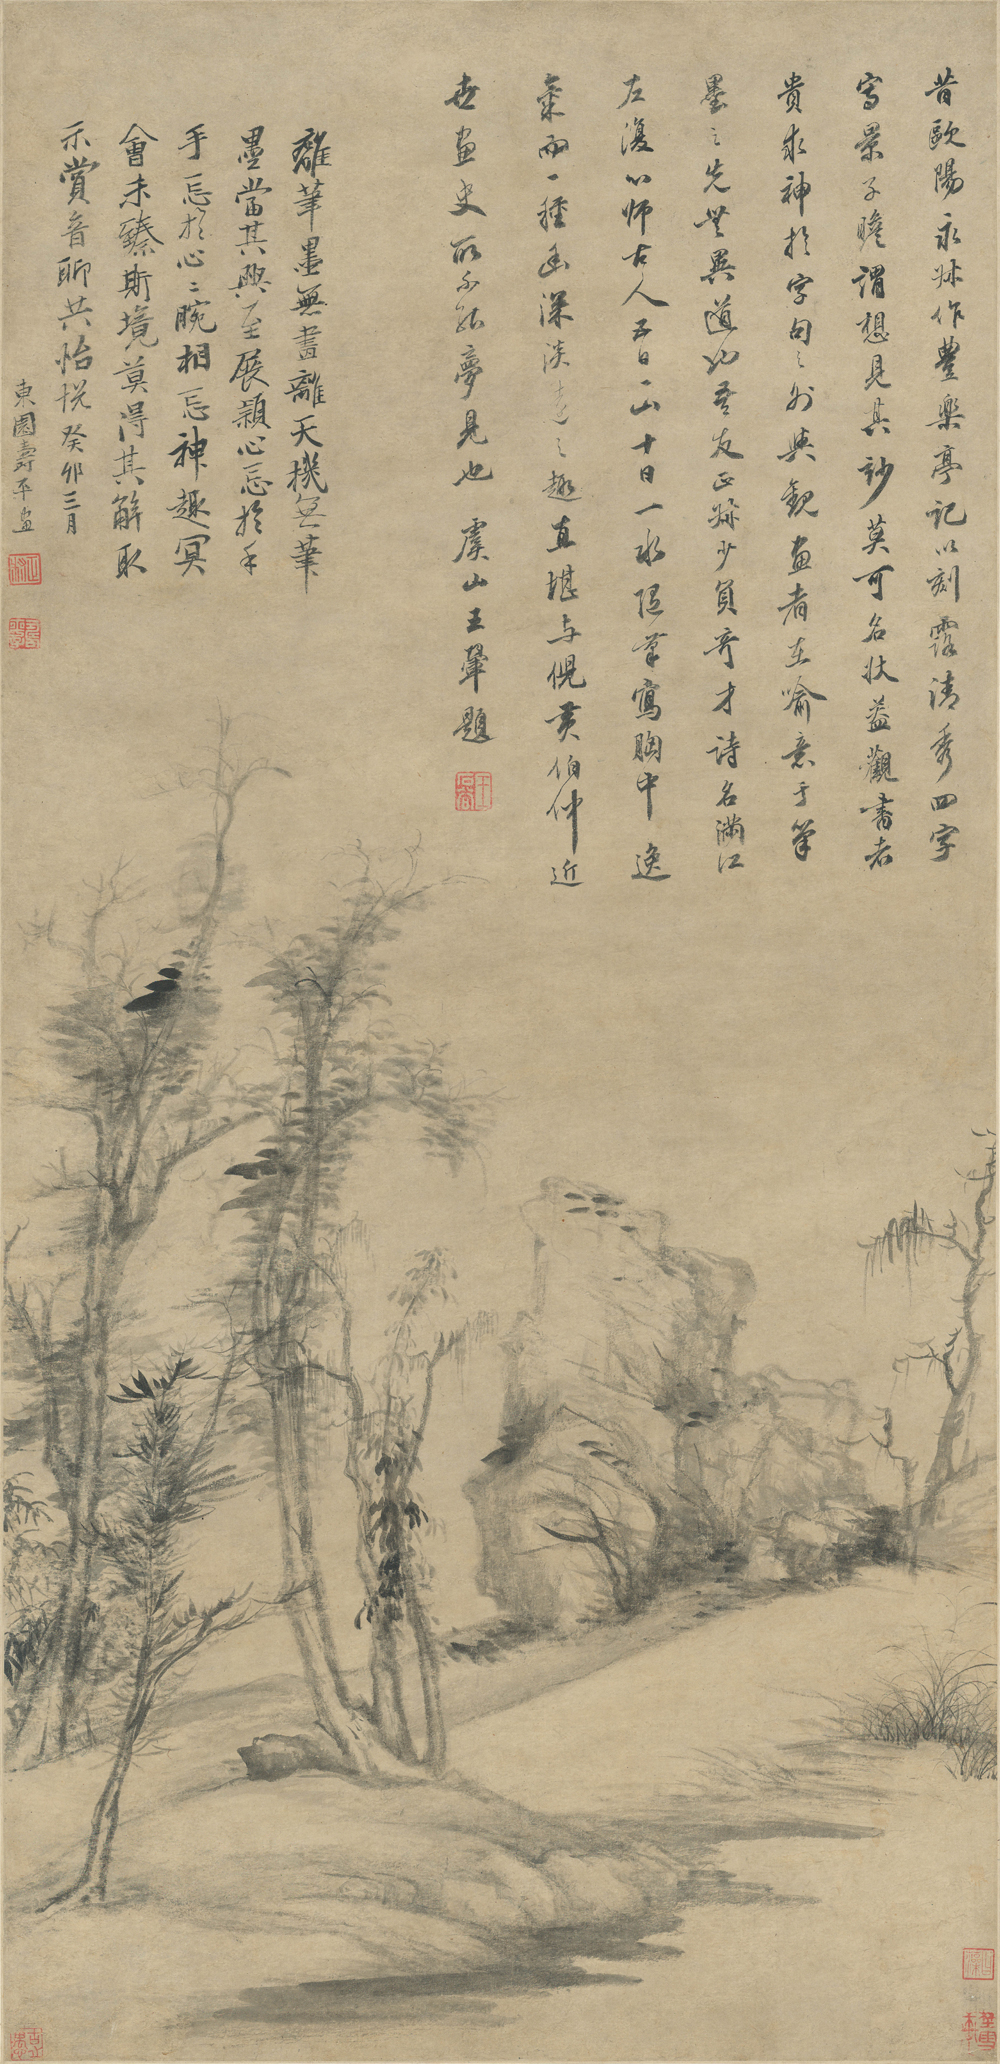 昔歐陽永叔作豐樂亭記以刻露清秀四字
寫景子瞻謂想見其妙莫可名狀蓋觀書者
貴求神於字句之外與觀畫者在喻意于筆
墨之先豈異道也吾友正叔少負奇才詩名滿江
左復以師古人五日一山十日一水隨筆寫胸中逸
氣而一種幽深淡遠之趣直堪與倪黃伯仲近
世畫史所不能夢見也 虞山王翬題
離筆墨無畫離天機無筆
墨當其興至展穎心忘於手
手忘於心心腕相忘神趣冥
會未臻斯境莫得其解取
示賞音聊共怡悅癸卯三月
東園壽平畫